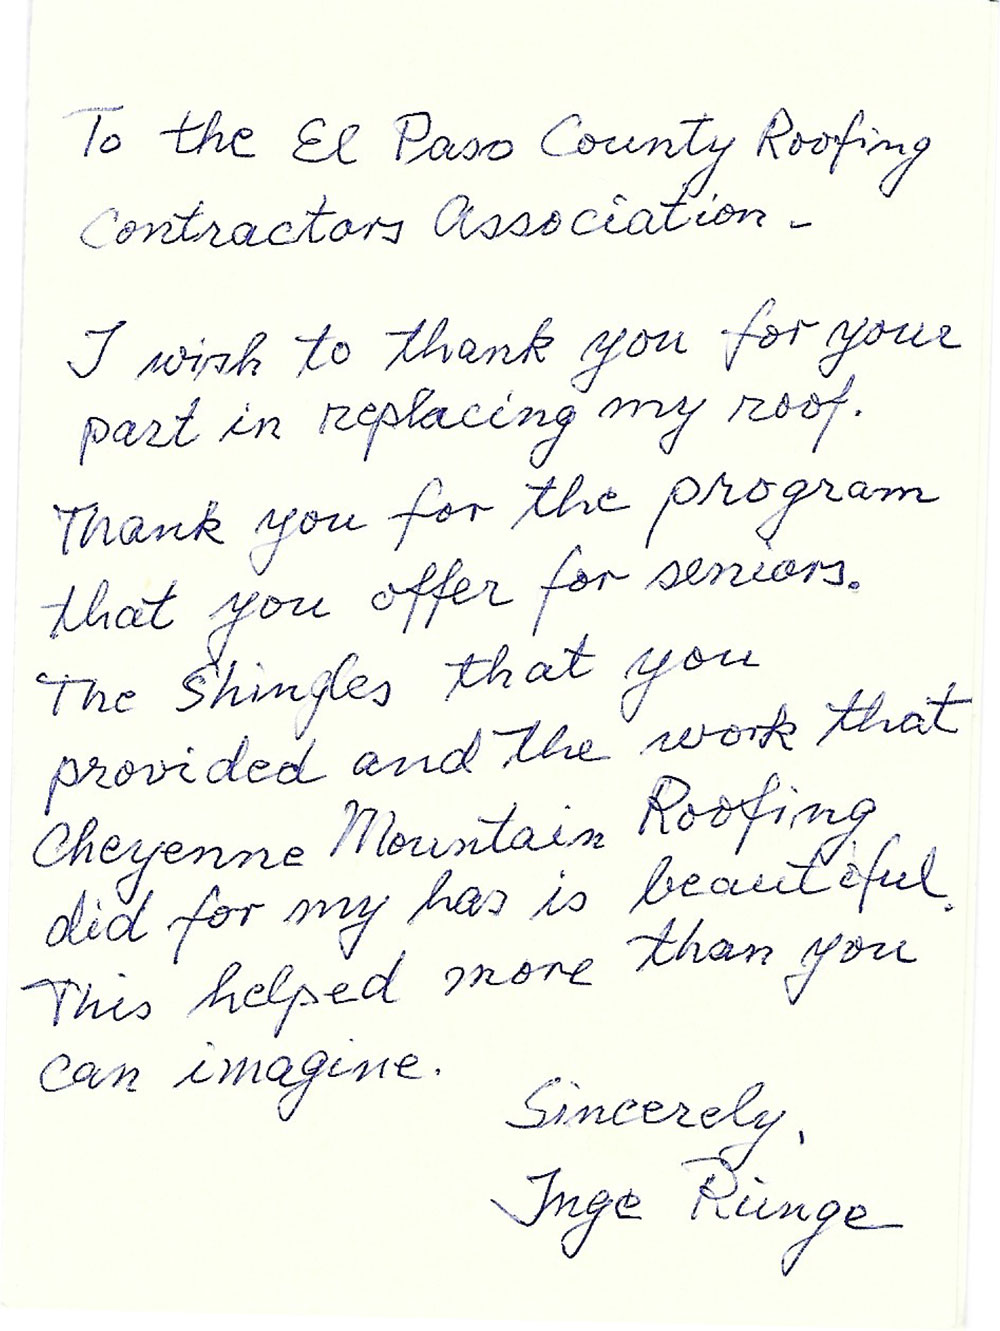 To the El Paso County Roofing
Contractors Association -
I wish to thank you for your
part in replacing my roof.
Thank you for the program
that you offer for seniors.
The Shingles that you
provided and the work that
Cheyenne Mountain Roofing
did for my has is beautiful.
This helped more than you
can imagine.
Sincerely,
Inge Runge